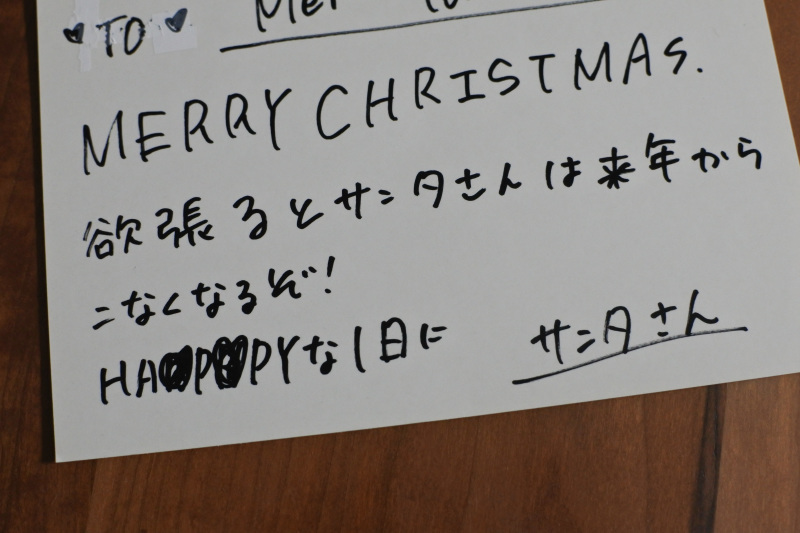 ♥TO♥
MERRY CHRISTMAS.
欲張るとサンタさんは来年から
こなくなるぞ!
HAPPYな1日に
サンタさん